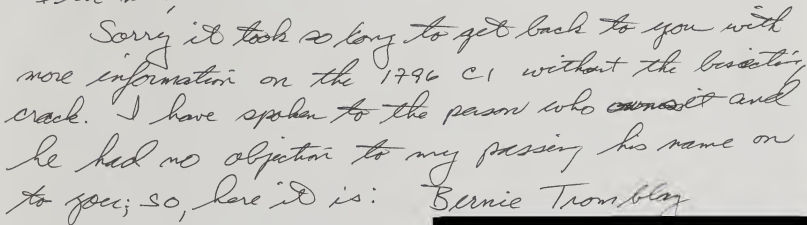 Sorry it took so long to get back to you with
more information on the 1796 C1 without the bisecting
crack. I have spoken to the person who owns it and
he had no objection to my passing his name on
to you; so, here it is: Bernie Tromblay